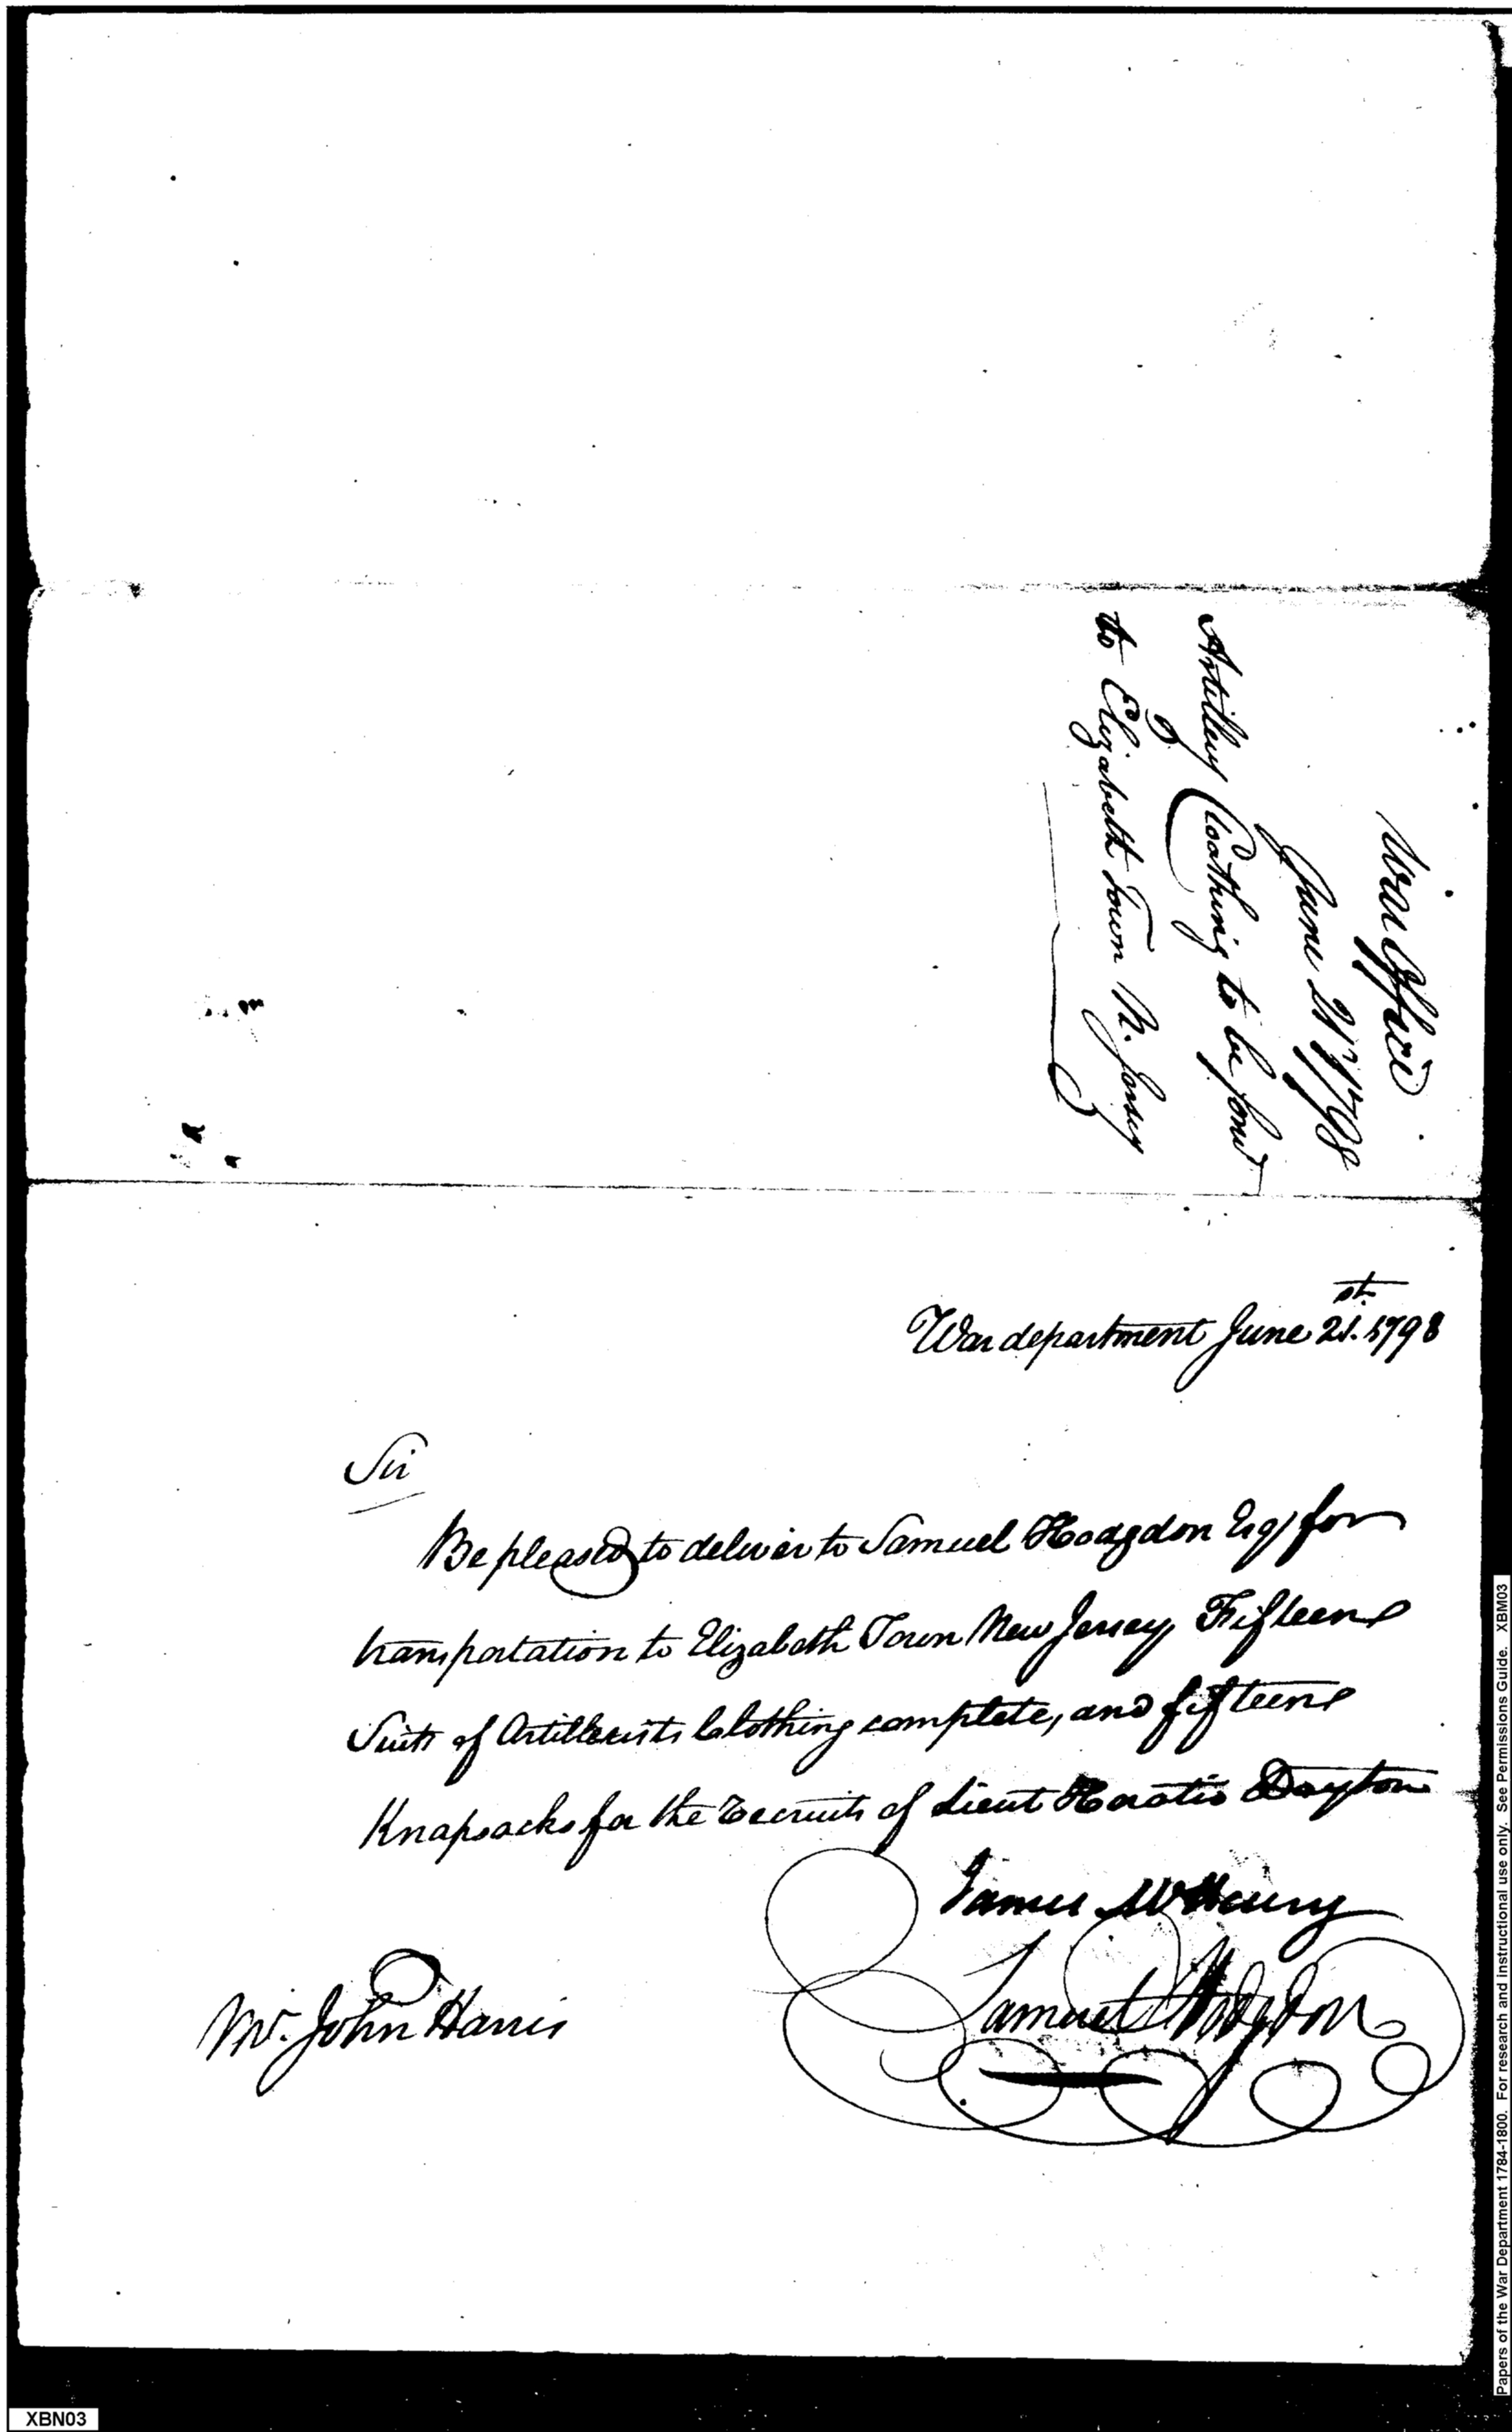 War Office
June 21st 1798
Artillery Cloathing to be forwd
to Elizabeth Town N. Jersey
War department June 21st. 1798
Sir
Be pleased to deliver to Samuel Hodgdon Esqr for
transportation to Elizabeth Town New Jersey, Fifteen
Suits of Artillerists Clothing complete, and fifteen
Knapsacks for the Recruits of Lieut Horatio Dayton
James McHenry
Samuel Hodgdon
Mr. John Harris
Papers of the War Department 1784-1800. For research and instructional use only. See Permissions Guide. XBM03
XBN03